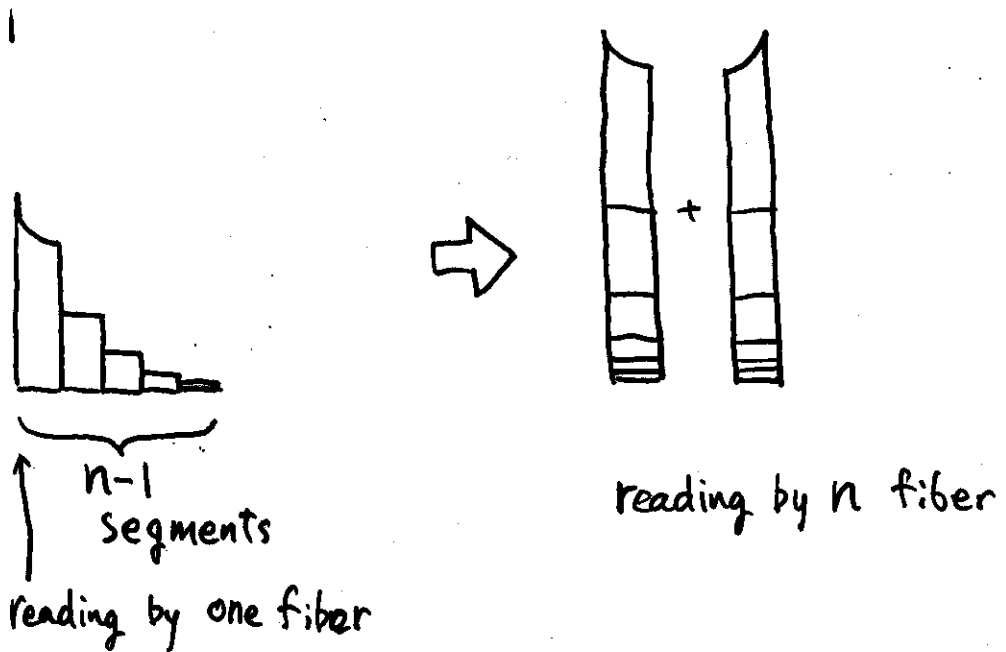 +
n-1
segments
reading by n fiber
reading by one fiber